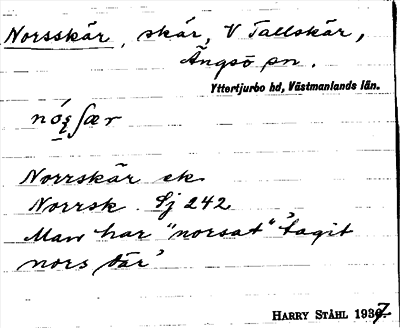 Norsskär, skär, V Tallskär,
Ängsö sn.
Yttertjurbo hd, Västmanlands län.
Norrskär ek
Norrsk. Sj 242
Man har "norsat" 'tagit
nors där'
HARRY STÅHL 1937.